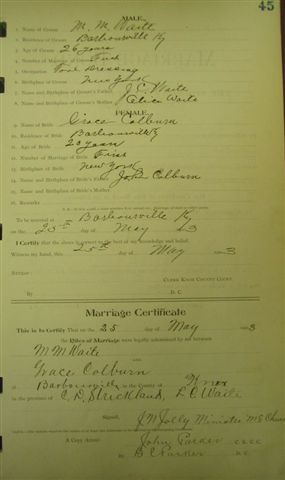 45
MALE.
1. Name of Groom M. M. Waite
2. Residence of Groom Barbourville Ky
3. Age of Groom 26 years
4. Number of Marriage of Groom First
5. Occupation Tool Dressing
6. Birthplace of Groom New York
7. Name and Birthplace of Groom's Father J. E. Waite
8. Name and Birthplace of Groom's Mother Alice Waite
FEMALE.
9. Name of Bride Grace Colburn
10. Residence of Bride Barbourville Ky
11. Age of Bride 20 years
12. Number of Marriage of Bride First
13. Birthplace of Bride New York
14. Name and Birthplace of Bride's Father John Colburn
15. Name and Birthplace of Bride's Mother
16. Remarks
To be married at Barbourville Ky
on the 25th day of May 3
I Certify that the above is correct to the best of my knowledge and belief.
Witness my hand, this 25th day of May 3
CLERK KNOX COUNTY COURT.
By D. C.
Marriage Certificate
This is to Certify That on the 25 day of May 3
the Rites of Marriage were legally solemnized by me between
M M Waite
and
Grace Colburn
at Barbourville in the County of Knox
in the presence of C. D. Strickland, L C Waite
Signed, J M Jolly Minister M E Church
A Copy Attest: John Parker
B C Parker DC